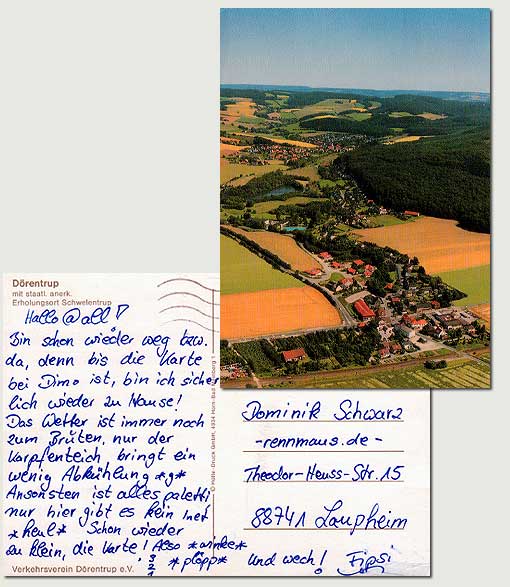 Dörentrup
mit staatl. anerk.
Erholungsort Schwelentrup
Hallo @all!
Bin schon wieder weg bzw.
da, denn bis die Karte
bei Dimo ist, bin ich sicher
lich wieder zu Hause!
Das Wetter ist immer noch
zum Brüten, nur der
Karpfenteich, bringt ein
wenig Abkühlung *g*
Ansonsten ist alles paletti
nur hier gibt es kein Inet
*heul* Schon wieder
zu klein, die Karte! Also *winke*
3
2
1
*plöpp* Und wech! Fipsi
Verkehrsverein Dörentrup e.V.
Dominik Schwarz
-rennmaus.de-
Theodor-Heuss-Str. 15
88741 Laupheim